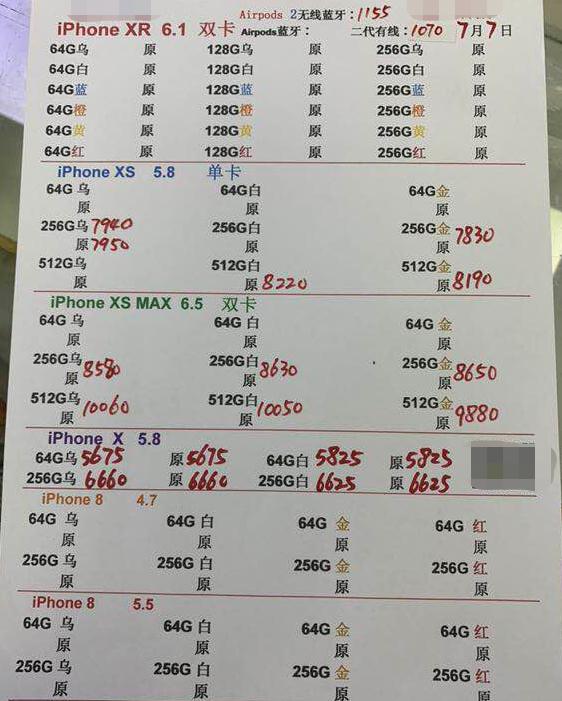 Airpods 2无线蓝牙：1155
iPhone XR 6.1 双卡 Airpods蓝牙： 二代有线：1070 7月7日
64G乌 原 128G乌 原 256G乌 原
64G白 原 128G白 原 256G白 原
64G蓝 原 128G蓝 原 256G蓝 原
64G橙 原 128G橙 原 256G橙 原
64G黄 原 128G黄 原 256G黄 原
64G红 原 128G红 原 256G红 原
iPhone XS 5.8 单卡
64G 乌 64G白 64G金
原 原 原
256G乌7940 256G白 256G金
原7950 原 原7830
512G乌 512G白 512G金
原 原8220 原8190
iPhone XS MAX 6.5 双卡
64G 乌 64G 白 64G 金
原 原 原
256G乌 256G白 256G金
原8580 原8630 原8650
512G乌 512G白 512G金
原10060 原10050 原9880
iPhone X 5.8
64G乌5675 原5675 64G白5825 原5825
256G乌6660 原6660 256G白6625 原6625
iPhone 8 4.7
64G 乌 64G 白 64G 金 64G 红
原 原 原 原
256G 乌 256G 白 256G 金 256G 红
原 原 原 原
iPhone 8 5.5
64G 乌 64G 白 64G 金 64G 红
原 原 原 原
256G 乌 256G 白 256G 金 256G 红
原 原 原 原